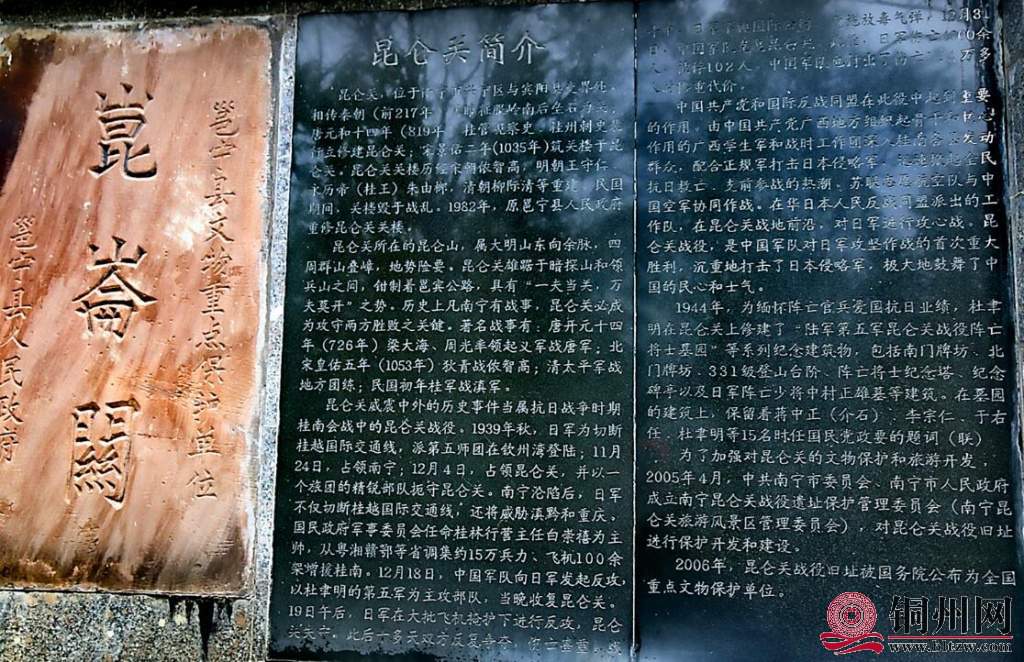 崑崙關
邕宁县文物重点保护单位
邕宁县人民政府
昆仑关简介
昆仑关,位于
区与宾阳县交界处,
相传秦朝(前217年
岭南后垒石为关,
唐元和十四年(819年
桂管观察史、桂州刺史裴
行立修建昆仑关;宋景佑二年(1035年)筑关楼于昆
仑关。昆仑关关楼历经宋朝侬智高,明朝王守仁
永历帝(桂王)朱由榔,清朝柳际清等重建,民国
期间,关楼毁于战乱。1982年,原邕宁县人民政府
重修昆仑关关楼。
昆仑关所在的昆仑山,属大明山东向余脉,四
周群山叠嶂,地势险要。昆仑关雄踞于暗探山和领
兵山之间,钳制着邕宾公路,具有“一夫当关,万
夫莫开”之势。历史上凡南宁有战事,昆仑关必成
为攻守两方胜败之关健。著名战事有:唐开元十四
年(726年)梁大海、周光率领起义军战唐军;北
宋皇佑五年(1053年)狄青战侬智高;清太平军战
地方团练;民国初年桂军战滇军。
昆仑关威震中外的历史事件当属抗日战争时期
桂南会战中的昆仑关战役。1939年秋,日军为切断
桂越国际交通线,派第五师团在钦州湾登陆;11月
24日,占领南宁;12月4日,占领昆仑关,并以一
个旅团的精锐部队扼守昆仑关。南宁沦陷后,日军
不仅切断桂越国际交通线,还将威胁滇黔和重庆。
国民政府军事委员会任命桂林行营主任白崇禧为主
帅,从粤湘赣鄂等省调集约15万兵力、飞机100余
架增援桂南。12月18日,中国军队向日军发起反攻,
以杜聿明的第五军为主攻部队,当晚收复昆仑关。
19日午后,日军在大批飞机掩护下进行反攻,昆仑
关失守。此后十多天双方反复争夺,伤亡甚重
施放毒气弹,12月31
日,中国军队克复昆仑关。此役,日军阵亡
0余
人,被俘102人,中国军队也付出了伤亡
万多
重代价。
中国共产党和国际反战同盟在此役中起到重要
的作用,由中国共产党广西地方组织起骨干和中心
作用的广西学生军和战时工作团深入桂南各
发动
群众,配合正规军打击日本侵略军,迅速掀起全民
抗日救亡、支前参战的热潮。苏联志愿航空队与中
国空军协同作战。在华日本人民反战同盟派出的工
作队,在昆仑关战地前沿,对日军进行攻心战。昆
仑关战役,是中国军队对日军攻坚作战的首次重大
胜利,沉重地打击了日本侵略军,极大地鼓舞了中
国的民心和士气。
1944年,为缅怀阵亡官兵爱国抗日业绩,杜聿
明在昆仑关上修建了“陆军第五军昆仑关战役阵亡
将士墓园”等系列纪念建筑物,包括南门牌坊、北
门牌坊、331级登山台阶、阵亡将士纪念塔、纪念
碑亭以及日军阵亡少将中村正雄墓等建筑。在墓园
的建筑上,保留着蒋中正(介石)、李宗仁、于右
任、杜聿明等15名时任国民党政要的题词(联)
为了加强对昆仑关的文物保护和旅游开发,
2005年4月,中共南宁市委员会、南宁市人民政府
成立南宁昆仑关战役遗址保护管理委员会(南宁昆
仑关旅游风景区管理委员会),对昆仑关战役旧址
进行保护开发和建设。
2006年,昆仑关战役旧址被国务院公布为全国
重点文物保护单位。
铜州网
www.bltzw.com